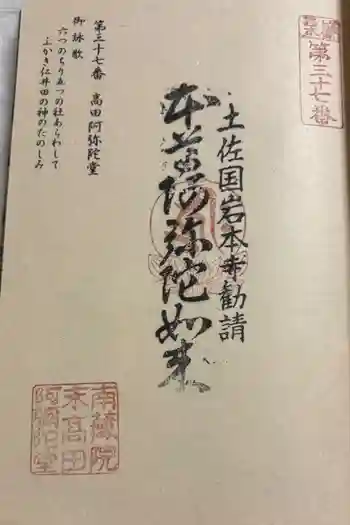 第三十七番
土佐国岩本寺勧請
本尊阿弥陀如来
第三十七番　高田阿弥陀堂
御詠歌
六つのちりゐつの社あらわして
ふかき仁井田の神のたのしみ
南藏院
末高田
阿彌陀堂